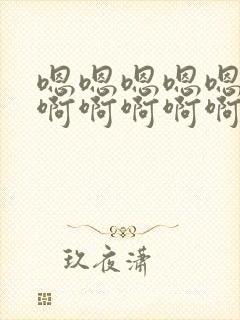 嗯嗯嗯嗯嗯
啊啊啊啊啊
玖夜潇